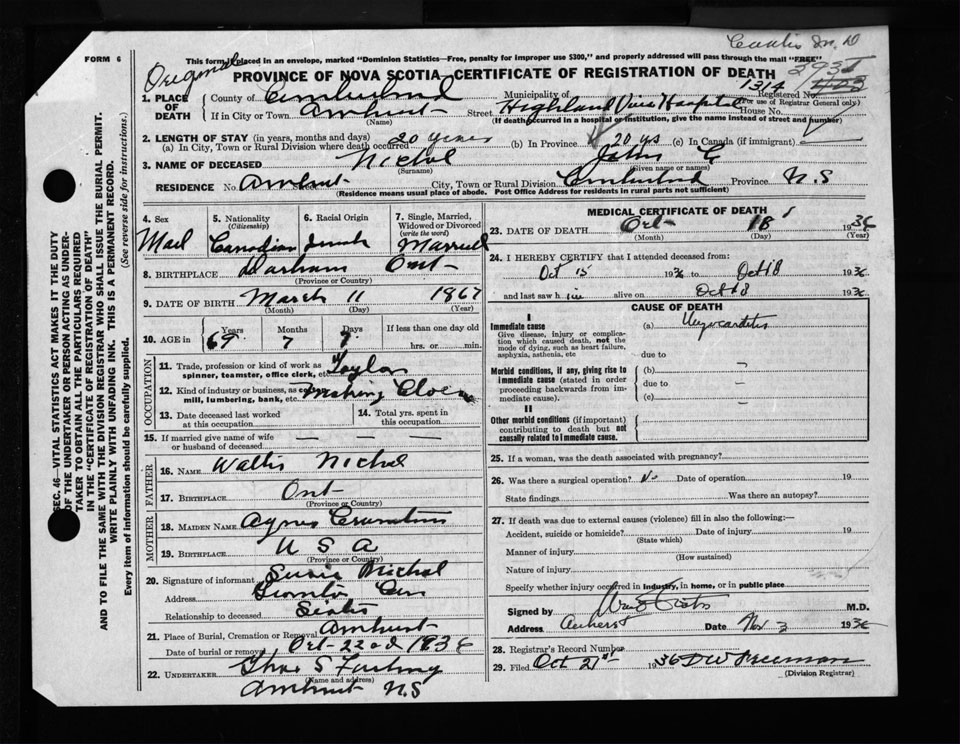 Curtis M. D
FORM 6
This form if placed in an envelope, marked "Dominion Statistics—Free, penalty for improper use $300," and properly addressed will pass through the mail "FREE"
Original
PROVINCE OF NOVA SCOTIA—CERTIFICATE OF REGISTRATION OF DEATH
1314 Registered No.
(For use of Registrar General only)
1. PLACE OF DEATH
County of Cumberland Municipality of
If in City or Town Amherst Street Highland View Hospital House No.
(Name) (If death occurred in a hospital or institution, give the name instead of street and number)
2. LENGTH OF STAY (in years, months and days)
(a) In City, Town or Rural Division where death occurred 20 years (b) In Province 20 ys (c) In Canada (if immigrant)
3. NAME OF DECEASED Nichol
(Surname) (Given name or names)
RESIDENCE No. Amherst City, Town or Rural Division Cumberland Province N.S
(Residence means usual place of abode. Post Office Address for residents in rural parts not sufficient)
4. Sex 5. Nationality (Citizenship) 6. Racial Origin 7. Single, Married, Widowed or Divorced (write the word)
Mael Canadian Married
8. BIRTHPLACE Durham Ont
(Province or Country)
9. DATE OF BIRTH March 11 1867
(Month) (Day) (Year)
10. AGE in Years Months Days If less than one day old
69 7 7 hrs. or min.
OCCUPATION
11. Trade, profession or kind of work as
spinner, teamster, office clerk, etc. Taylor
12. Kind of industry or business, as
mill, lumbering, bank, etc. Making
13. Date deceased last worked at this occupation
14. Total yrs. spent in this occupation
15. If married give name of wife
or husband of deceased — — —
FATHER
16. NAME Nichol
17. BIRTHPLACE Ont
(Province or Country)
MOTHER
18. MAIDEN NAME Agnes
19. BIRTHPLACE U S A
(Province or Country)
20. Signature of informant Susie Nichol
Address Toronto
Relationship to deceased Sister
21. Place of Burial, Cremation or Removal Amherst
Date of burial or removal Oct 22nd 1936
22. UNDERTAKER
(Name and address)
Amherst N S
MEDICAL CERTIFICATE OF DEATH
23. DATE OF DEATH Oct 18 1936
(Month) (Day) (Year)
24. I HEREBY CERTIFY that I attended deceased from:
Oct 15 1936 to Oct 18 1936
and last saw h im alive on Oct 18 1936
CAUSE OF DEATH
I
Immediate cause (a) Myocarditis
Give disease, injury or complication which caused death, not the mode of dying, such as heart failure, asphyxia, asthenia, etc
due to
Morbid conditions, if any, giving rise to immediate cause (stated in order proceeding backwards from immediate cause). (b) —
due to —
(c) —
II
Other morbid conditions (if important) contributing to death but not causally related to immediate cause.
25. If a woman, was the death associated with pregnancy?
26. Was there a surgical operation? No Date of operation 19
State findings Was there an autopsy?
27. If death was due to external causes (violence) fill in also the following:—
Accident, suicide or homicide? Date of injury 19
(State which)
Manner of injury
(How sustained)
Nature of injury
Specify whether injury occurred in industry, in home, or in public place
Signed by M.D.
Address Amherst Date Nov 3 1936
28. Registrar's Record Number
29. Filed Oct 21st 1936 D W Freeman
(Division Registrar)
SEC. 46—VITAL STATISTICS ACT MAKES IT THE DUTY
OF THE UNDERTAKER OR PERSON ACTING AS UNDER-
TAKER TO OBTAIN ALL THE PARTICULARS REQUIRED
IN THE "CERTIFICATE OF REGISTRATION OF DEATH"
AND TO FILE THE SAME WITH THE DIVISION REGISTRAR WHO SHALL ISSUE THE BURIAL PERMIT.
WRITE PLAINLY WITH UNFADING INK. THIS IS A PERMANENT RECORD.
Every item of information should be carefully supplied. (See reverse side for instructions.)